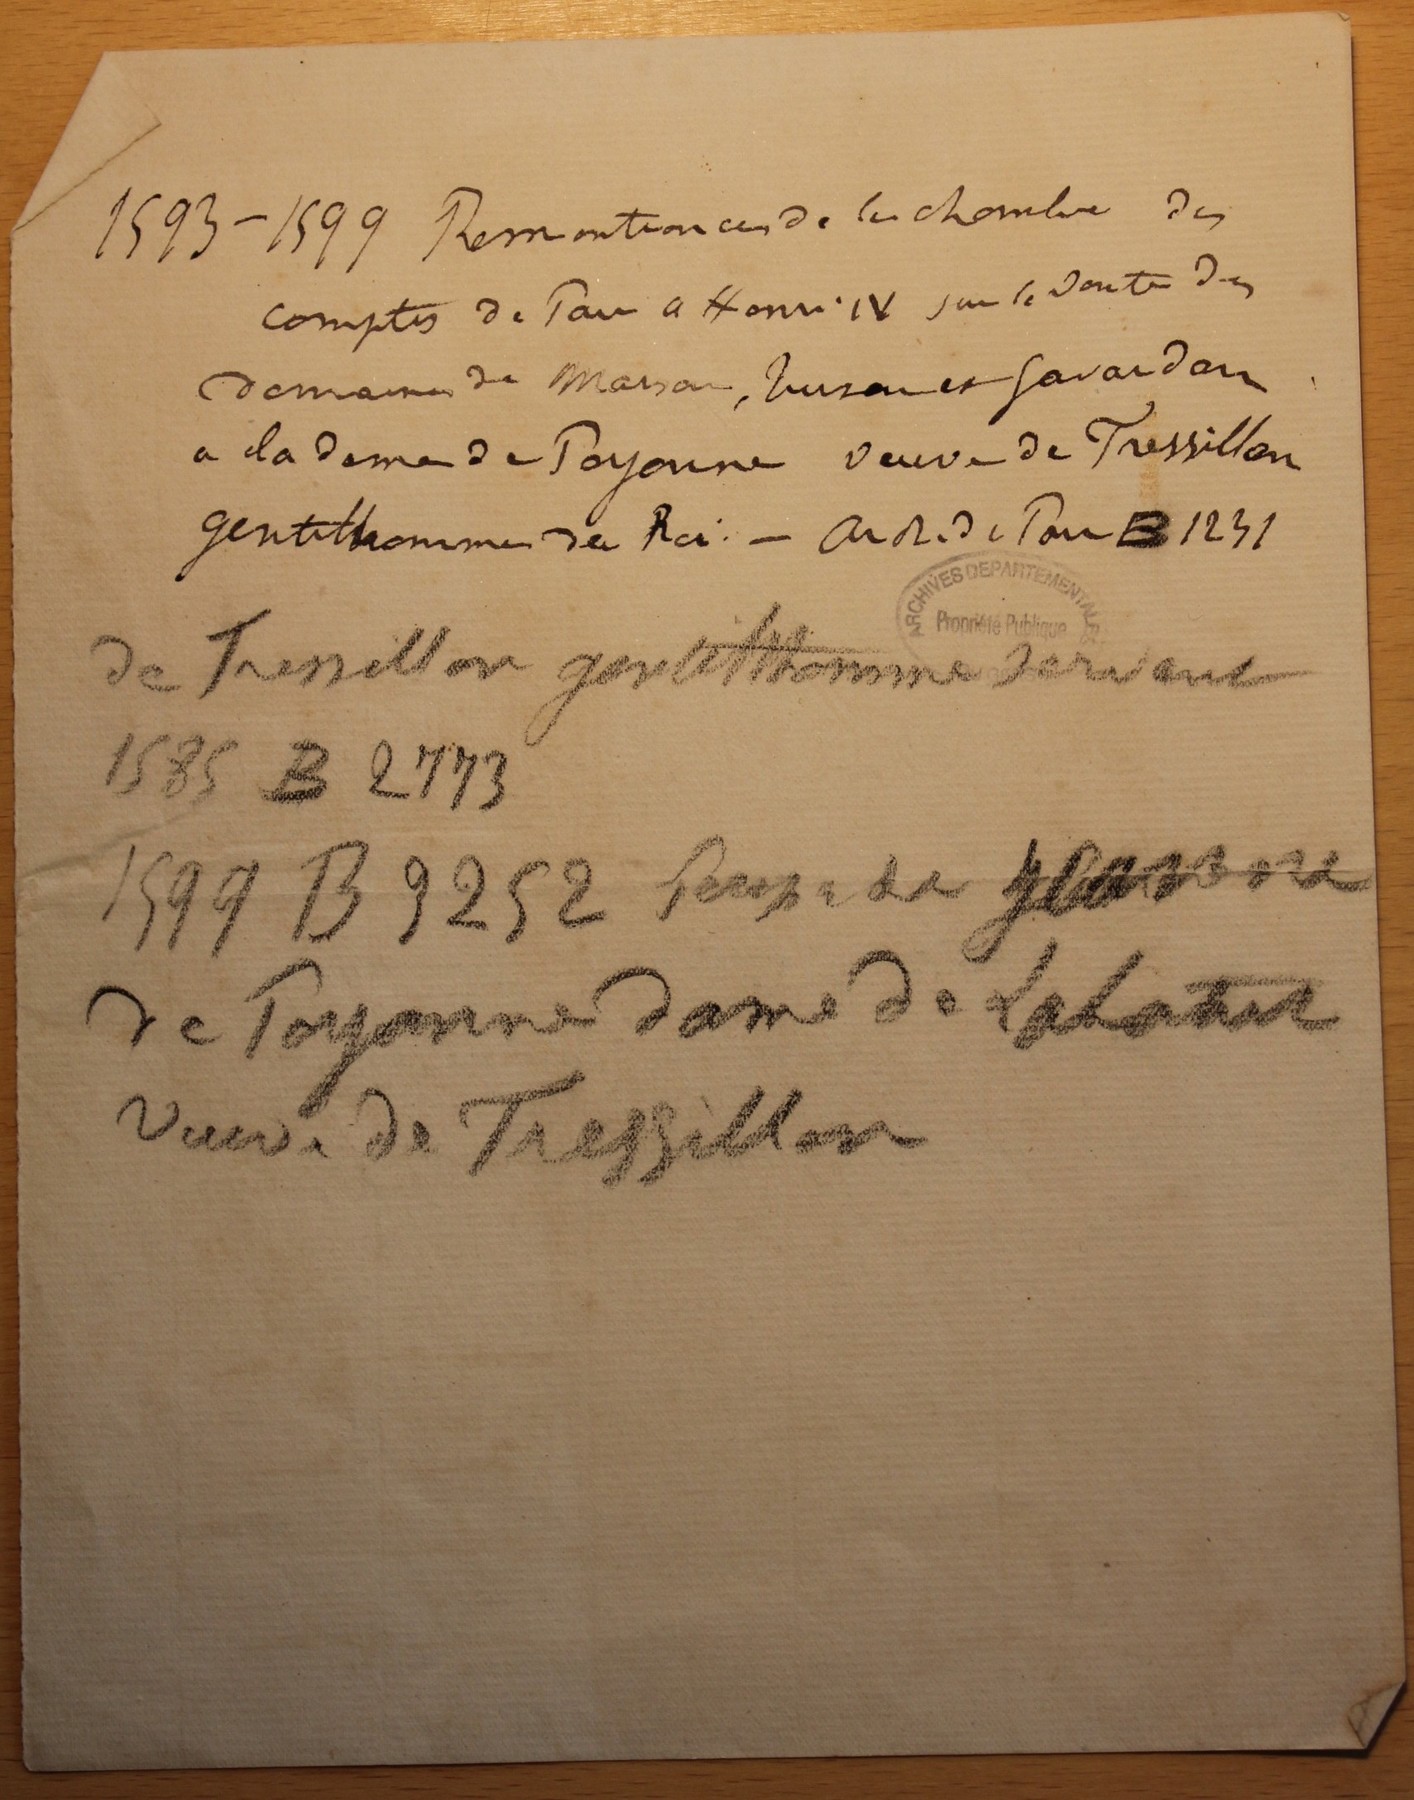 1593-1599 Remontrances de la chambre des
comptes de Pau a Henri IV sur la vente des
domaines de Marsan, Tursan et Gavardan
a la dame de Poyanne veuve de Tressillon
gentilhomme du Roi. — Arch. de Pau B 1231
ARCHIVES DEPARTEMENTALES
Propriété Publique
de Tressillon gentilhomme servant
1585 B 2773
1599 B 3252
de Poyanne dame de
veuve de Tressillon